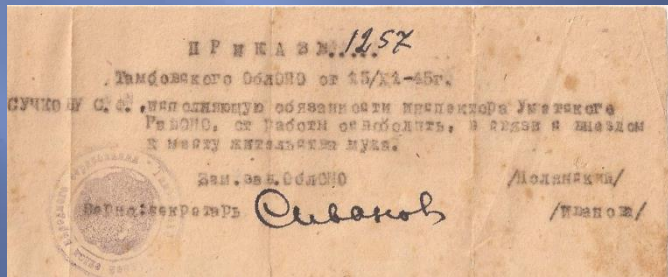 ПРИКАЗ №.1257
Тамбовского ОблОНО от 15/XI-45г.
СУЧКОВУ С.Ф., исполняющую обязанности инспектора Уметского
РайОНО, от работы освободить, в связи с выездом
к месту жительства мужа.
Зам.зав.ОблОНО /Полянский/
Верно:секретарь СИванов /Иванова/